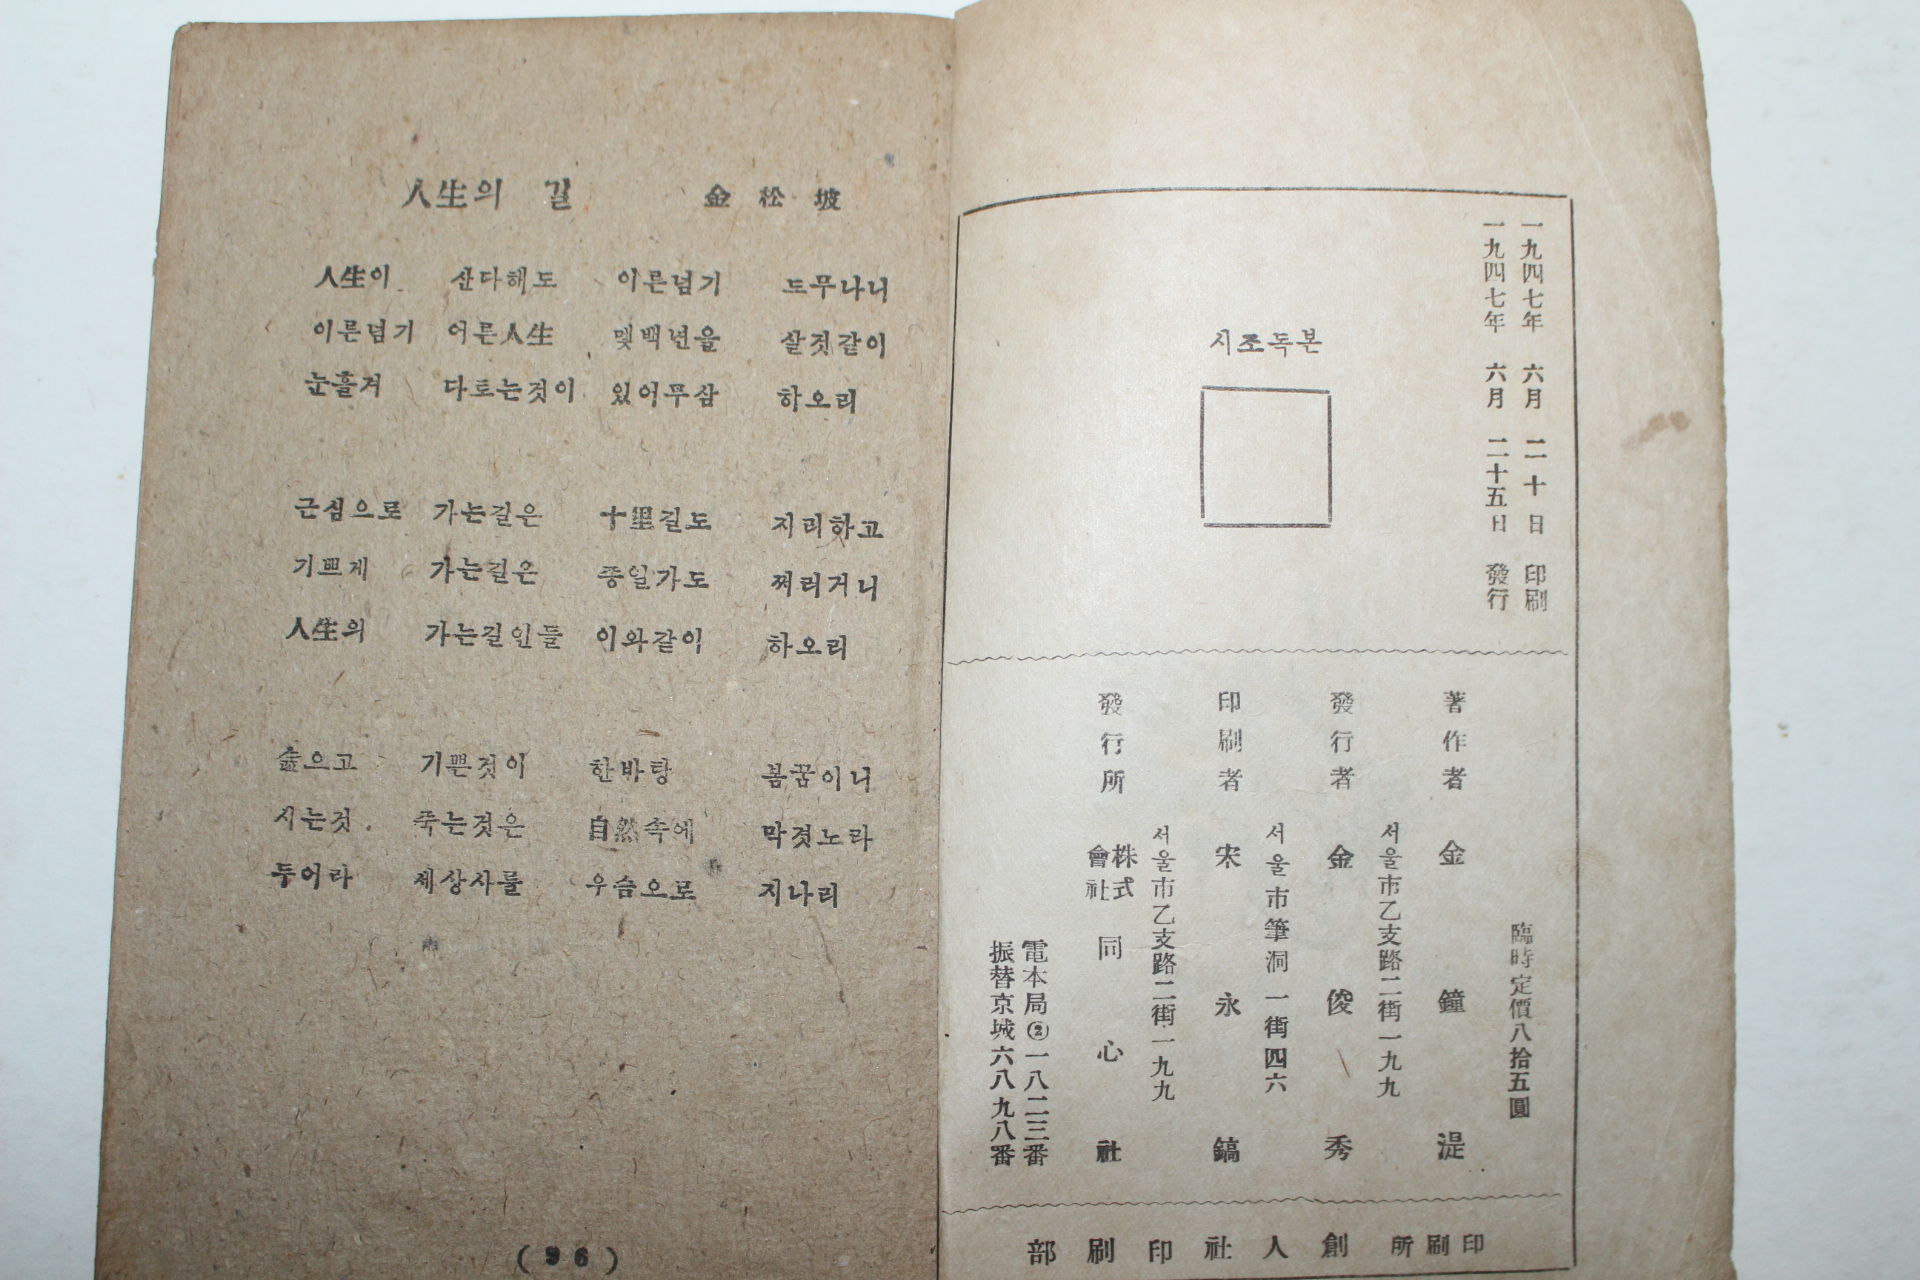 人生의 길 金松坡
人生이 산다해도 이른넘기 드무나니
이른넘기 어른人生 몇백년을 살것같이
눈흘겨 다토는것이 있어무삼 하오리
근심으로 가는길은 十里길도 지리하고
기쁘게 가는길은 종일가도 쩌러거니
人生의 가는길인들 이와같이 하오리
슲으고 기쁜것이 한바탕 봄꿈이니
사는것 죽는것은 自然속에 막겻노라
두어라 세상사를 우슴으로 지나리
(96)
一九四七年 六月 二十日 印刷
一九四七年 六月 二十五日 發行
시조독본
臨時定價八拾五圓
著作者 金鐘湜
서울市乙支路二街一九九
發行者 金俊秀
서울市筆洞一街四六
印刷者 宋永鎬
서울市乙支路二街一九九
發行所 株式會社 同心社
電本局②一八二三番
振替京城六八九八番
印刷所 創人社印刷部